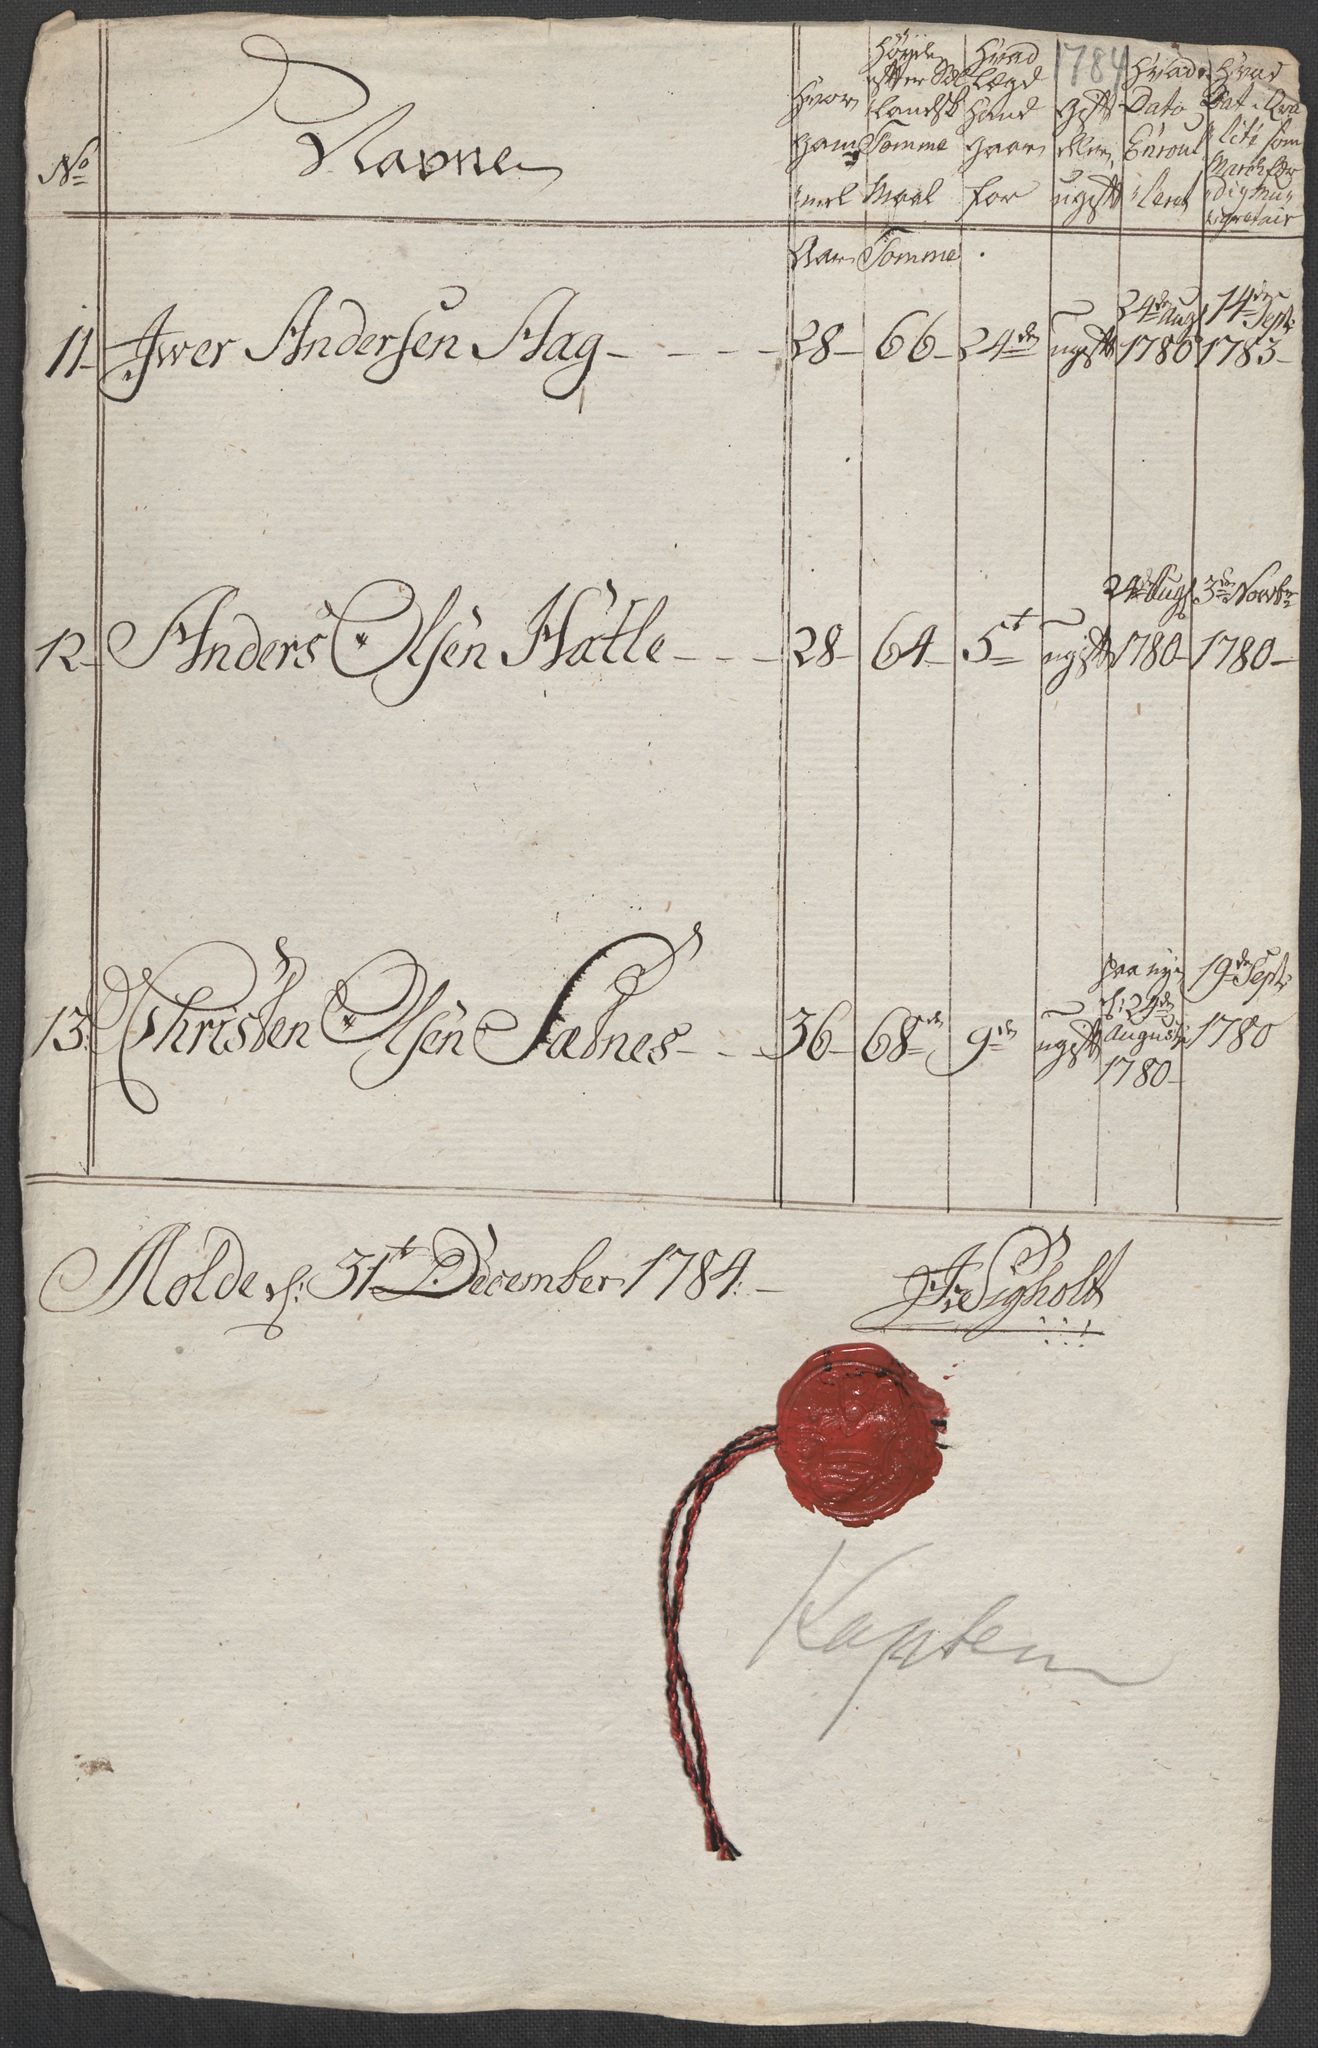 1784
No
Navne
Hvor
Gam¬
mel
Høyde
efter Sæl
landsk
Tomme
Maal
Hvad
Lægd
hand
gaar
for
gift
eller
ugift
Hvad
Dato
Enroul
leret
Hvad
Dat. i Qva
lité som
March fær
dig Mu¬
sqvetair
Aar Tomme
11 Iwer Andersen Aag 28 66 24de ugift 24de Aug 1780 14de Septr 1783
12 Anders Olsen Hatle 28 64 5t ugift 24de Aug 1780 3de Novbr 1780
13 Christen Olsen Sætnes 36 68 9de ugift paa nye d: 29de Augusti 1780 19de Septr 1780
Molde d: 31t December 1784.
J: Sigholt
Kaptein